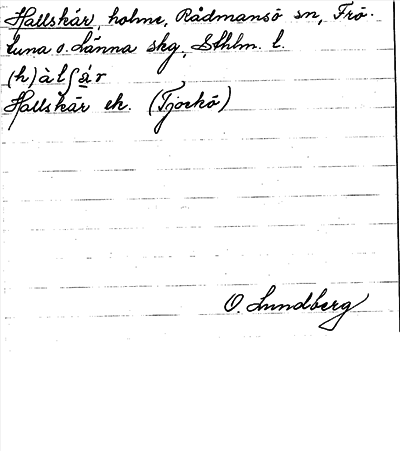 Hallskär, holme, Rådmansö sn, Frö-
tuna o. Länna skg, Sthlm. l.
(h)àlʃá̱r
Hallskär ek. (Tjockö)
O. Lundberg